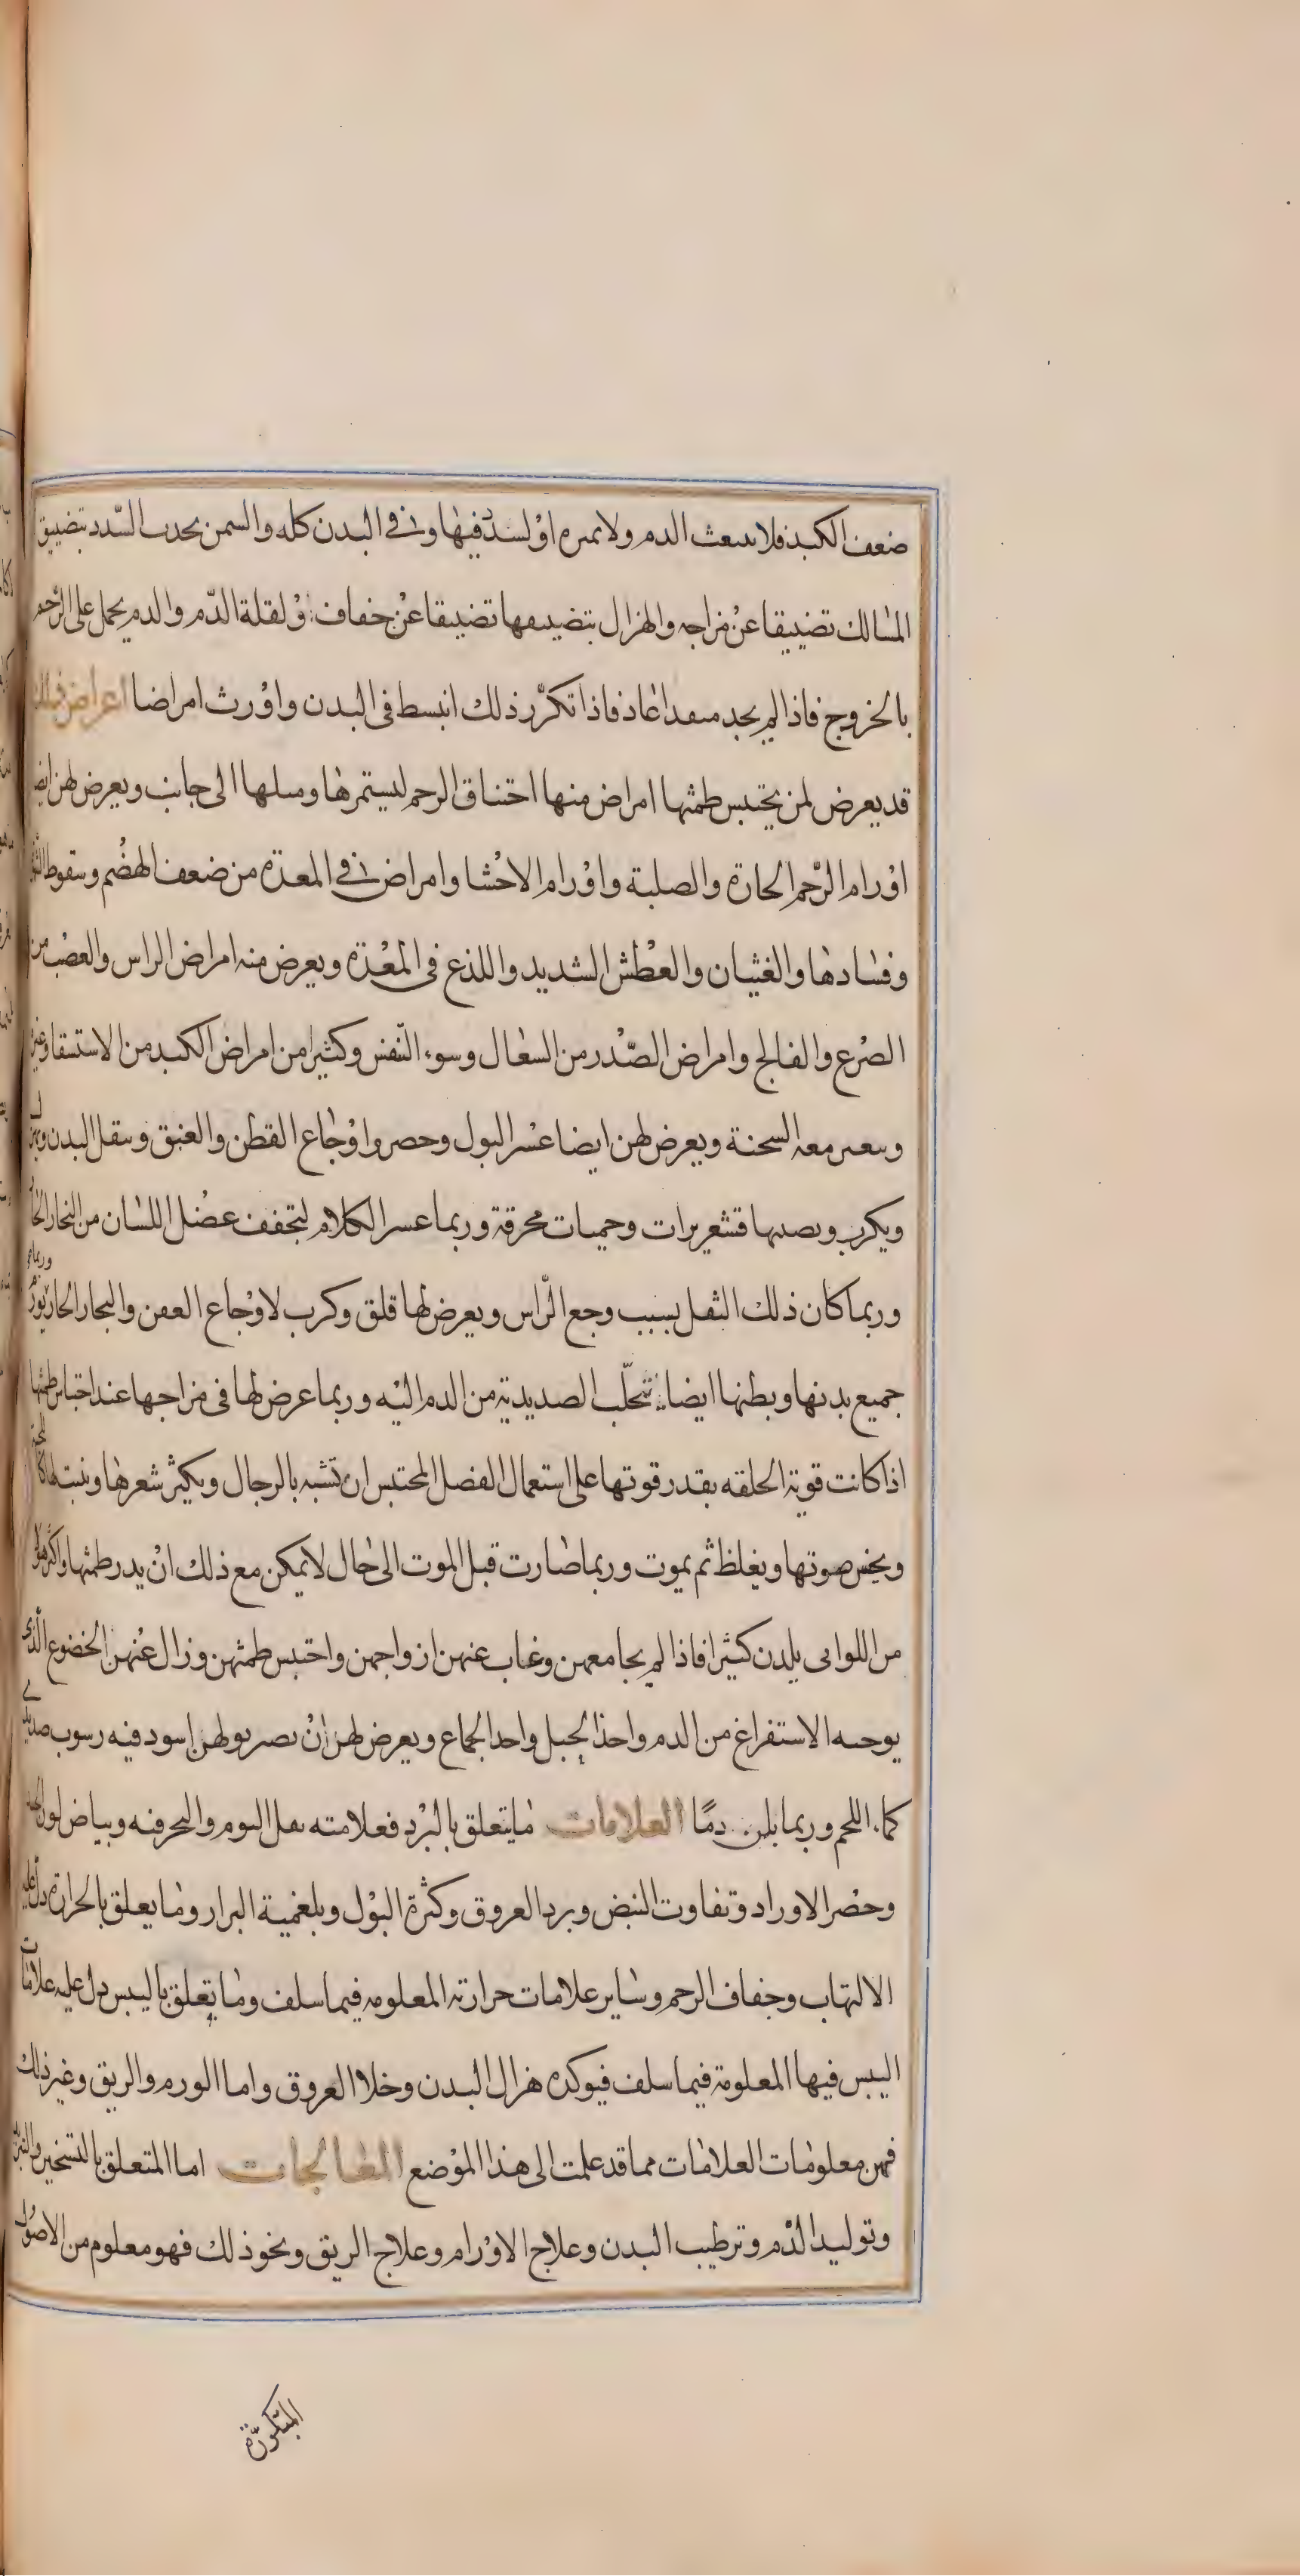 ضعف الكبد فلا يبعث الدم ولا يميزه او لسدد فيها او في البدن كله والسمن يحدث السدد بتضييق
المسالك تضييقا عن مزاجه والهزال بتضييقها تضييقا عن جفاف ولقلة الدم والدم يحمل على الرحم
بالخروج فاذا لم يجد منفذا عاد فاذا تكرر ذلك انبسط في البدن واورث امراضا اعراض ذلك
قد يعرض لمن يحتبس طمثها امراض منها اختناق الرحم ليستمرها وميلها الى جانب ويعرض لهن ايضا
اورام الرحم الحارة والصلبة واورام الاحشا وامراض في المعدة من ضعف الهضم وسقوط
وفسادها والغثيان والعطش الشديد واللذع في المعدة ويعرض منه امراض الراس والعصب من
الصرع والفالج وامراض الصدر من السعال وسوء النفس وكثيرا من امراض الكبد من الاستسقا وغير
معه السحنة ويعرض لهن ايضا عسر البول وحصر واوجاع القطن والعنق وينقل البدن
ويكرب ويصيبها قشعريرات وحميات محرقة وربما عسر الكلام لتجفف عضل اللسان من البخار الحار
وربما كان ذلك الثقل بسبب وجع الراس ويعرض لها قلق وكرب لاوجاع العفن والبخار الحار وربما تورم
جميع بدنها وبطنها ايضا تتحلب الصديدية من الدم اليه وربما عرض لها في مزاجها عند احتباس طمثها
اذا كانت قوية الخلقه بقدر قوتها على استعمال الفضل المحتبس ان تشبه بالرجال ويكثر شعرها وينبت لها كاللحية
ويخس صوتها ويغلظ ثم يموت وربما صارت قبل الموت الى حال لا يمكن مع ذلك ان يدر طمثها واكثر هؤلا
من اللواتى يلدن كثيرا فاذا لم يجامعهن وغاب عنهن ازواجهن واحتبس طمثهن وزال عنهن الخضوع الذى
يوجبه الاستفراغ من الدم واخذ الحبل واحد الجماع ويعرض لهن ان يصير بولهن اسود فيه رسوب صديدي
كماء اللحم وربما بلن دمًا العلامات ما يتعلق بالبرد فعلامته ثقل النوم والتحرفه وبياض لون
وخضر الاوراد وتفاوت النبض وبرد العروق وكثرة البول وبلغمية البراز وما يعلق بالحرارة دل عليه
الالتهاب وجفاف الرحم وساير علامات حرارته المعلومه فيما سلف وما يتعلق باليبس دل عليه علامات
اليبس فيها المعلومة فيما سلف فيوكده هزال البدن وخلا العروق واما الورم والريق وغير ذلك
فهن معلومات العلامات مما قد علمت الى هذا الموضع المعالجات اما المتعلق بالتسخين والتبريد
وتوليد الدم وترطيب البدن وعلاج الاورام وعلاج الريق ونحو ذلك فهو معلوم من الاصول